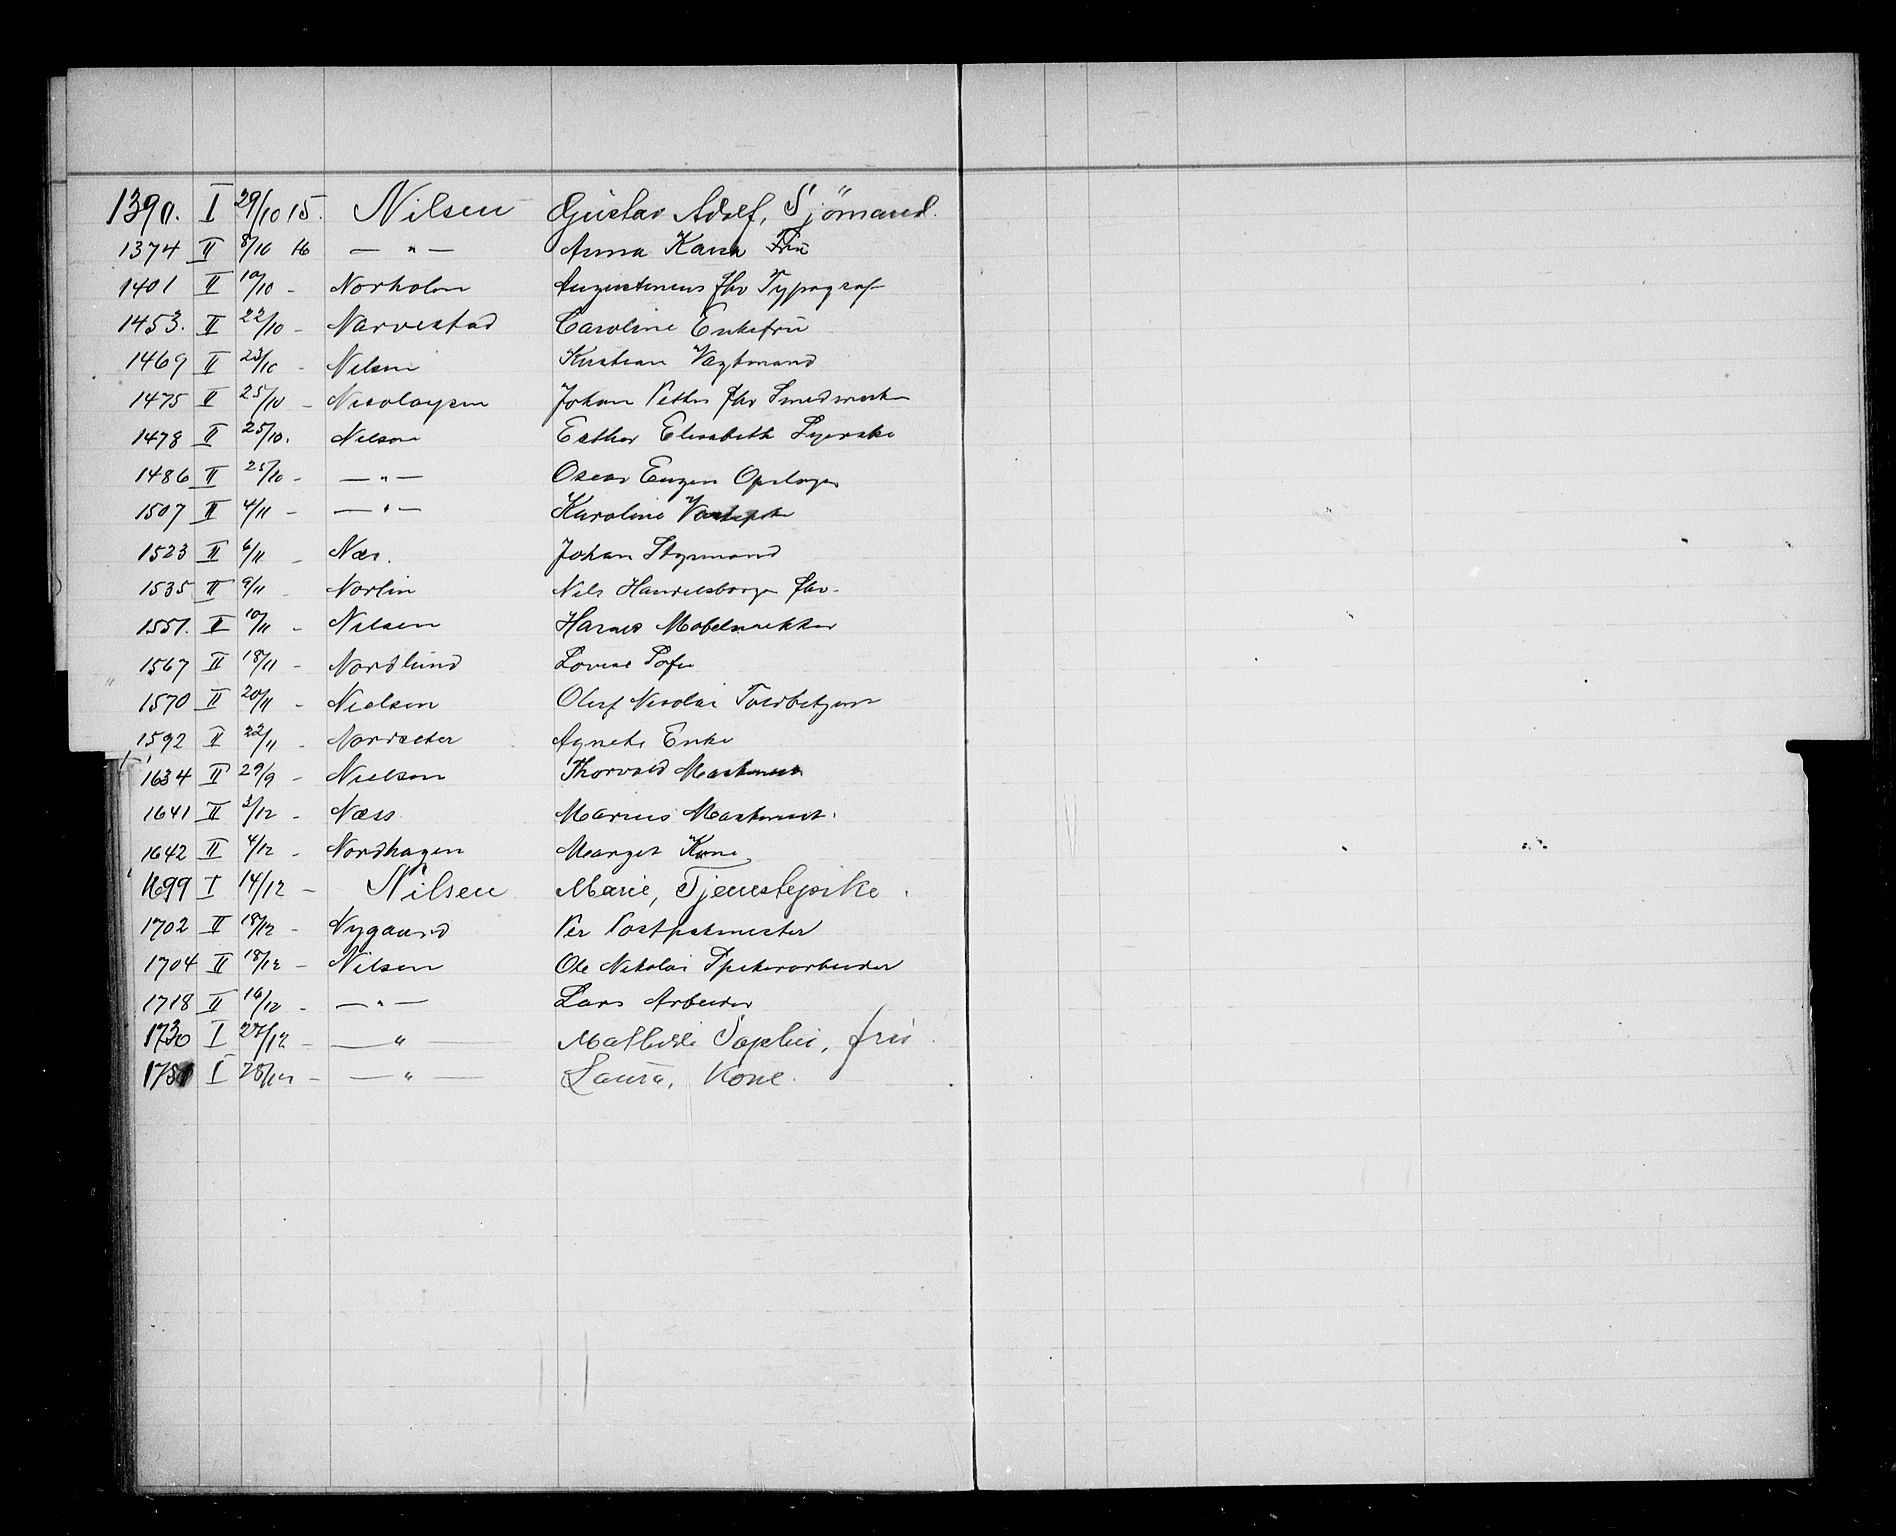 1390. I 29/10 15. Nilsen Gustav Adolf, Sjömand.
1374 II 8/10 16 — " — Anna Kaisa Fru
1401 II 10/10 - Norholm Augustinius fhv Typograf
1453. II 22/10 - Narvestad Caroline Enkefru
1469 II 23/10 - Nilsen Kristian Vægtmand
1475 II 25/10 - Nicolaysen Johan Petter fhv Smedmester
1478 II 25/10. Nilsen Esther Elisabeth Syerske
1486 II 25/10 - — " — Oscar Eugen Oplager
1507 II 4/11 - — " — Karoline
1523 II 6/11 - Næs. Johan Styrmand
1535 II 9/11 - Norlin Nils Handelsborger fhv.
1551. II 10/11 - Nilsen Hans Møbelsnekker
1567 II 18/11 - Nordlund Lovise Sofie
1570 II 20/11 - Nielsen Oluf Nicolai Toldbetjent
1592 II 22/11 - Nordseter Agnete Enke
1634 II 29/9 - Nielsen Thorvald Maskinist
1641 II 3/12 - Næss Marius Maskinist.
1642 II 4/12 - Nordhagen Marget Kone
1699 I 14/12 - Nilsen Marie, Tjenestepike.
1702 II 18/12 - Nygaard Per Postpakmester
1704 II 18/12 - Nilsen Ole Nikolai Spikerarbeider
1718 II 16/12 - — " — Lars Arbeider
1730 I 27/12 - — " — Mathilde Sophie, fru
I 28/12 - — " — Laura, Kone.